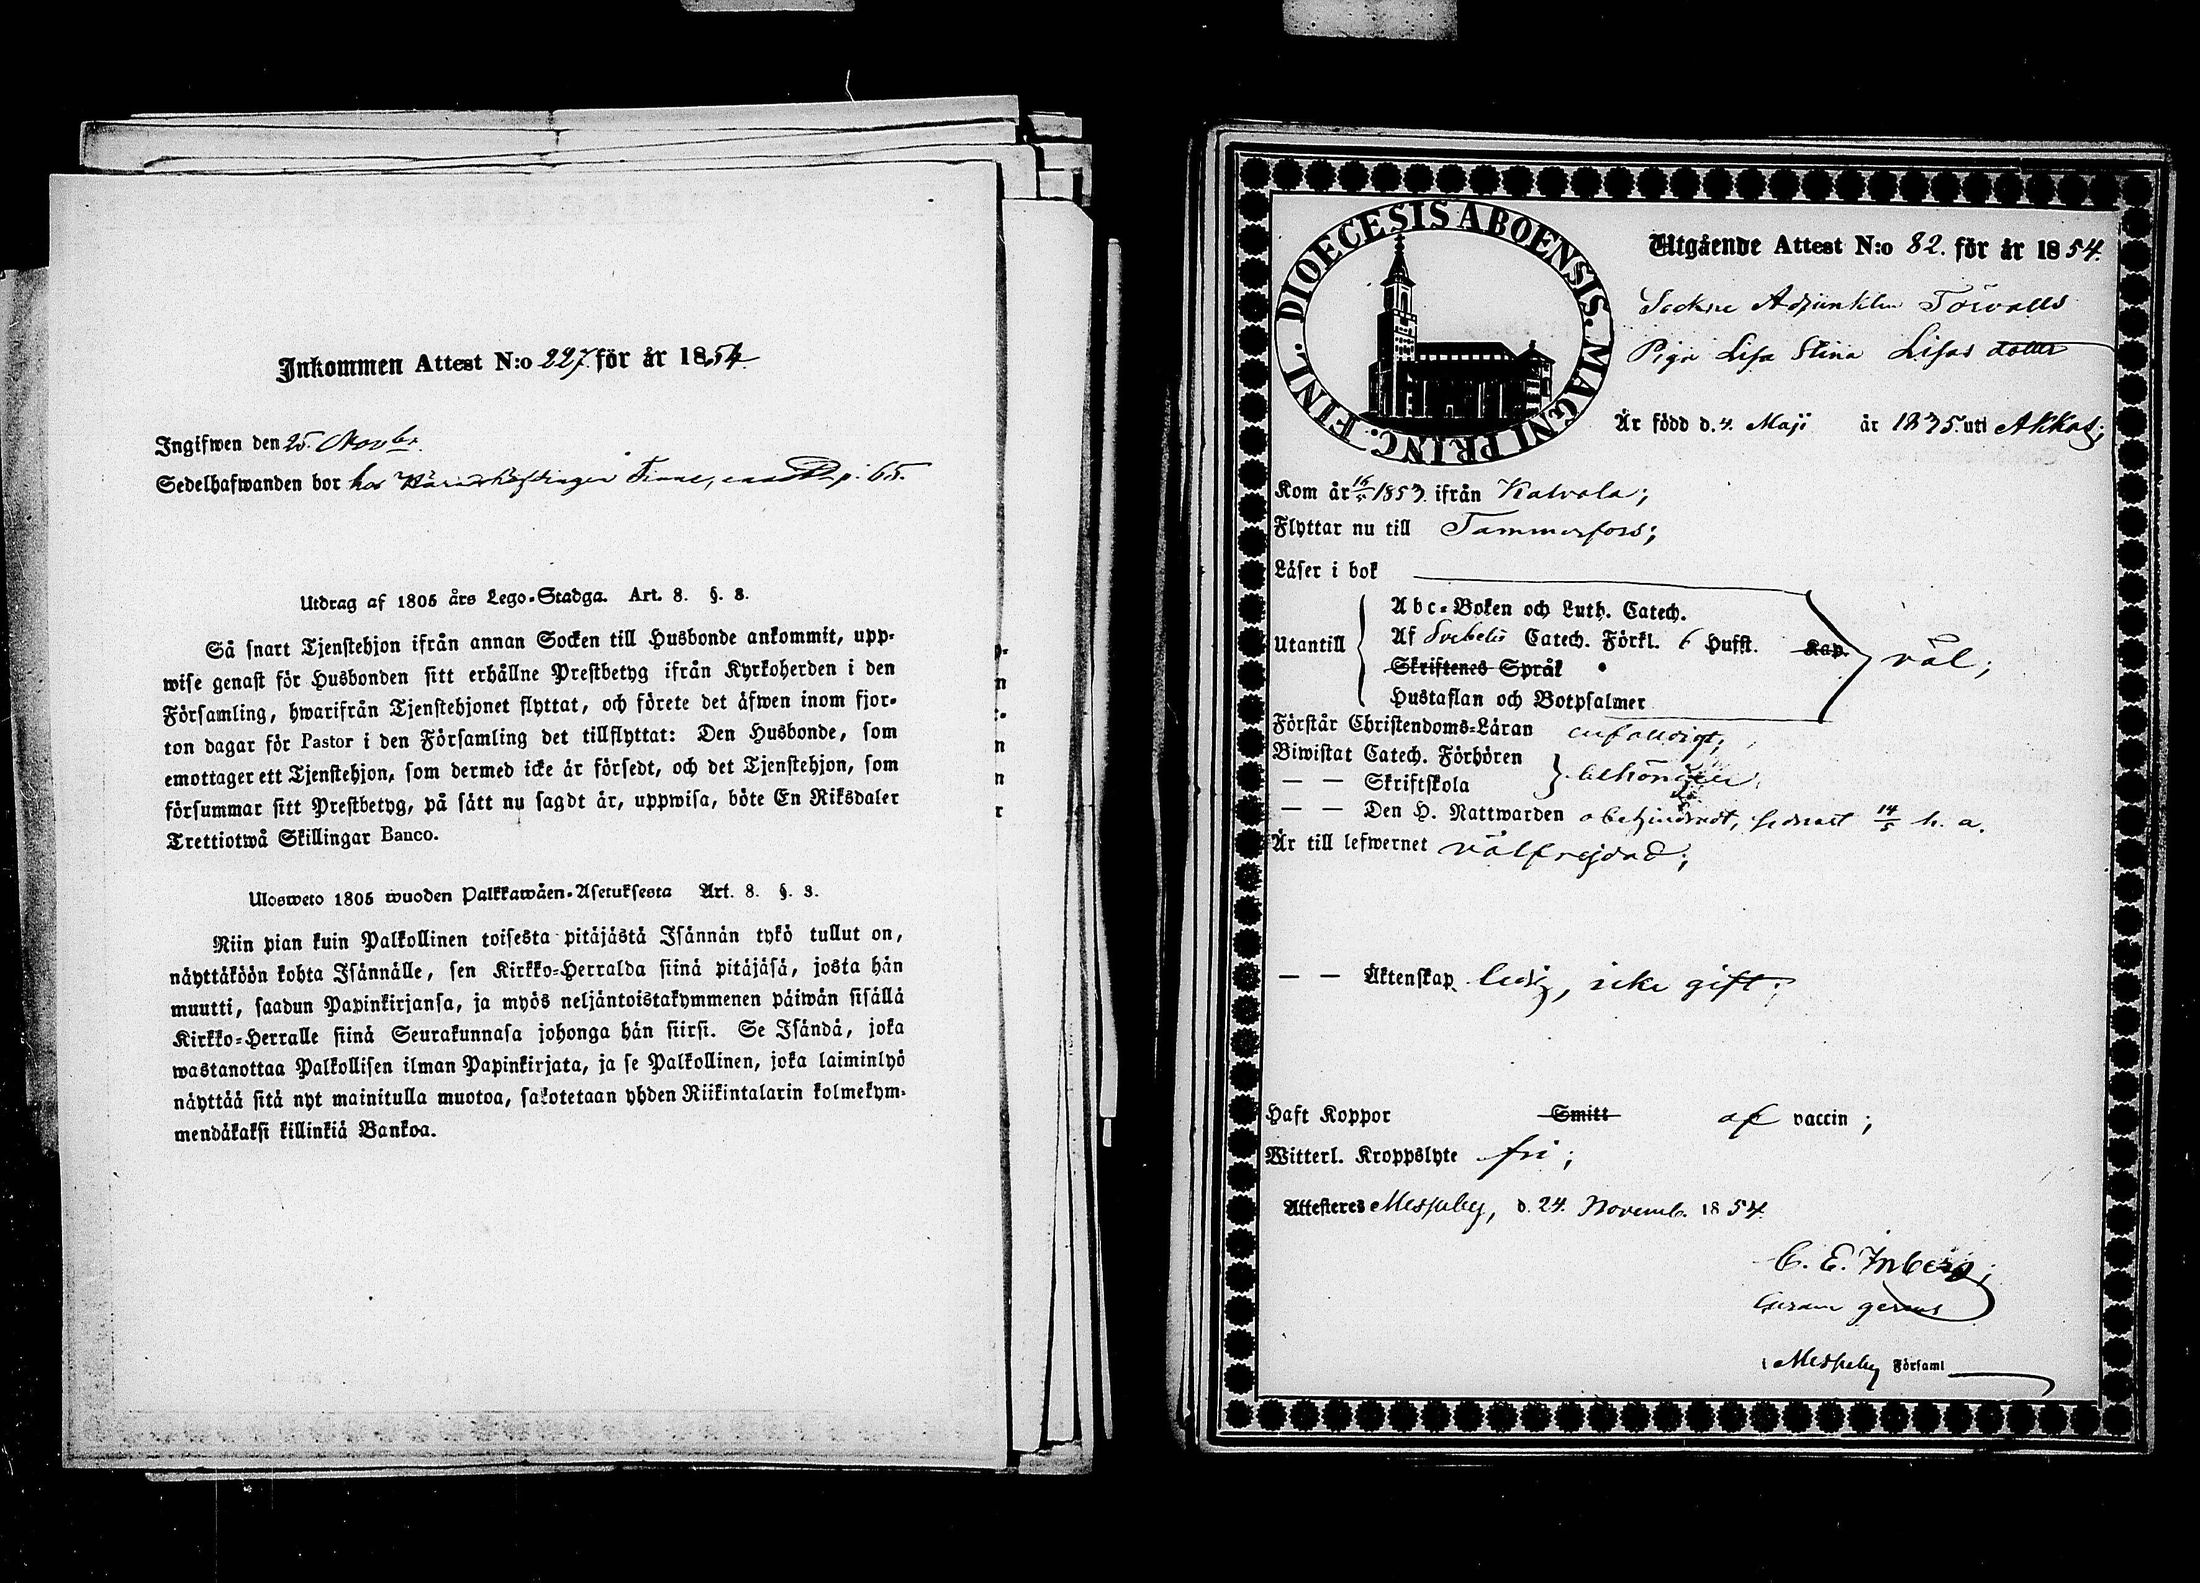 Inkommen Attest N:o 227. för år 1854.
Ingifwen den 25. Novbr.
Sedelhafwanden bor hos Häradshöfdingen p. 65.
Utdrag af 1805 års Lego-Stadga. Art. 8. §. 3.
Så snart Tjenstehjon ifrån annan Socken till Husbonde ankommit, upp-
wise genast för Husbonden sitt erhållne Prestbetyg ifrån Kyrkoherden i den
Församling, hwarifrån Tjenstehjonet flyttat, och förete det äfwen inom fjor-
ton dagar för Pastor i den Församling det tillflyttat: Den Husbonde, som
emottager ett Tjenstehjon, som dermed icke är försedt, och det Tjenstehjon, som
försummar sitt Prestbetyg, på sätt nu sagdt är, uppwisa, böte En Riksdaler
Trettiotwå Skillingar Banco.
Ulosweto 1805 wuoden Palkkawäen-Asetuksesta Art. 8. §. 3.
Niin pian kuin Palkollinen toisesta pitäjästä Isännän tykö tullut on,
näyttäköön kohta Isännälle, sen Kirkko-Herralda siinä pitäjäsä, josta hän
muutti, saadun Papinkirjansa, ja myös neljäntoistakymmenen päiwän sisällä
Kirkko-Herralle siinä Seurakunnasa johonga hän siirsi. Se Isändä, joka
wastanottaa Palkollisen ilman Papinkirjata, ja se Palkollinen, joka laiminlyö
näyttää sitä nyt mainitulla muotoa, sakotetaan yhden Riikintalarin kolmekym-
mendäkaksi killinkiä Bankoa.
DIOECESIS ABOENSIS. MAGNI PRINC. FINL.
Utgående Attest N:o 82. för år 1854.
Sockne Adjunkten Törvalls
Pigan Lisa Stina Lisas dotter
Är född d. 4. Maji år 1835. uti Akkas;
Kom år 16/5 1853. ifrån Kalvola;
Flyttar nu till Tammerfors;
Läser i bok
Abc-Boken och Luth. Catech.
Utantill Af Svebelii Catech. Förkl. 6 Hufst. Kap. väl;
Skriftenes Språk
Hustaflan och Botpsalmer
Förstår Christendoms-Läran enfaldigt;
Biwistat Catech. Förhören
— — Skriftskola behörigen;
— — Den H. Nattwarden obehindradt, sednast 14/5 h. a.
Är till lefwernet välfrejdad;
— — Äktenskap ledig, icke gift;
Haft Koppor Smitt af vaccin;
Witterl. Kroppslyte fri;
Attesteres Messuby, d. 24. Novemb. 1854.
C. E. Inberg;
Curam gerens
i Messuby Församl